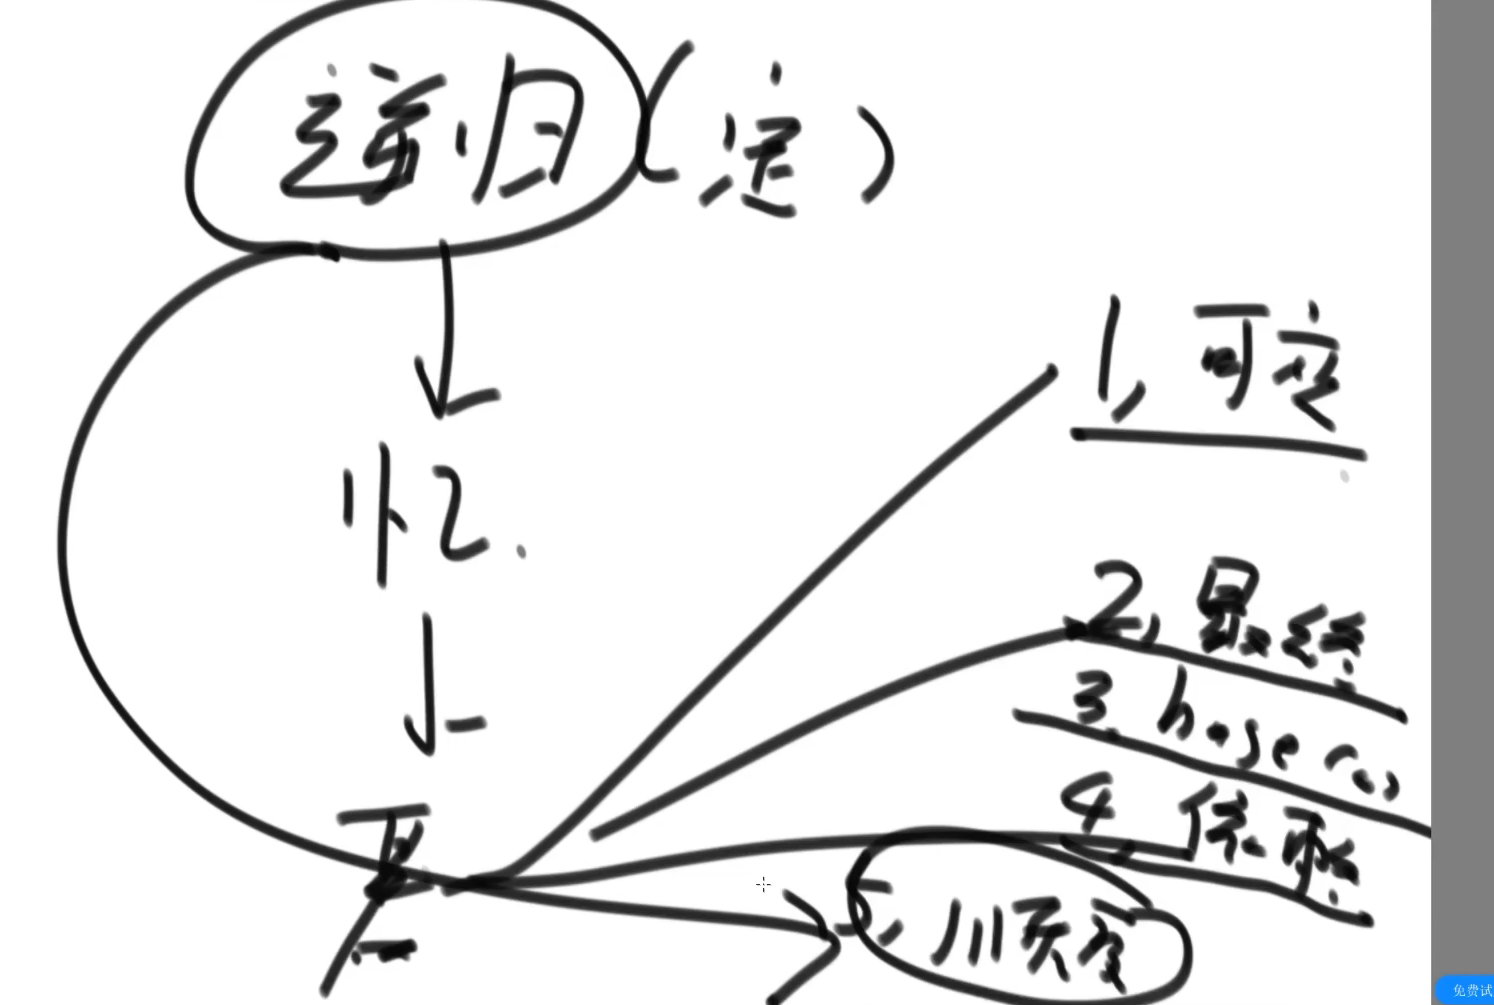 递归(定)
忆
1, 可变
2, 最终
3. base c
4 依赖
5, 顺序
免费试